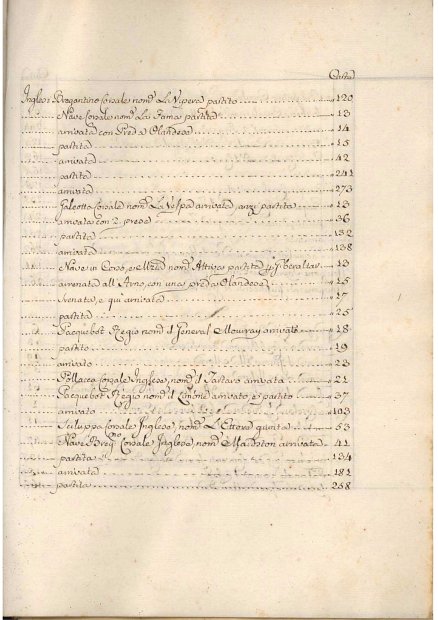 Carta
Inglese Bregantino Corsale nom.º La Vipera partito 120
Nave Corsale nom.ª La Fama partita 13
arrivata con Preda Olandese 14
partita 15
arrivata 42
partita 241
arrivata 273
Galeotta Corsale nom.ª La Vespa arrivata, anzi partita 13
arrivata con 2 prede 36
partita 132
arrivata 138
Nave in Corso, e Merzia nom.ª partita p Gibraltar 13
arrenata all'Arno, con una preda Olandese 15
, e qui arrivata 17
partita 25
Pacquebot Regio nom.º il General Mourray arrivato 18
partito 19
arrivato 23
Pollacca Corsale Inglese nom.ª il Tartaro arrivata 21
Pacquebot Regio nom.º il Limone arrivato, e partito 37
arrivato 103
Sciluppa Corsale Inglese nom.ª L'Ettore giunta 53
Nave Corsale Inglese nom.ª arrivata 41
partita 134
arrivata 181
partita 258